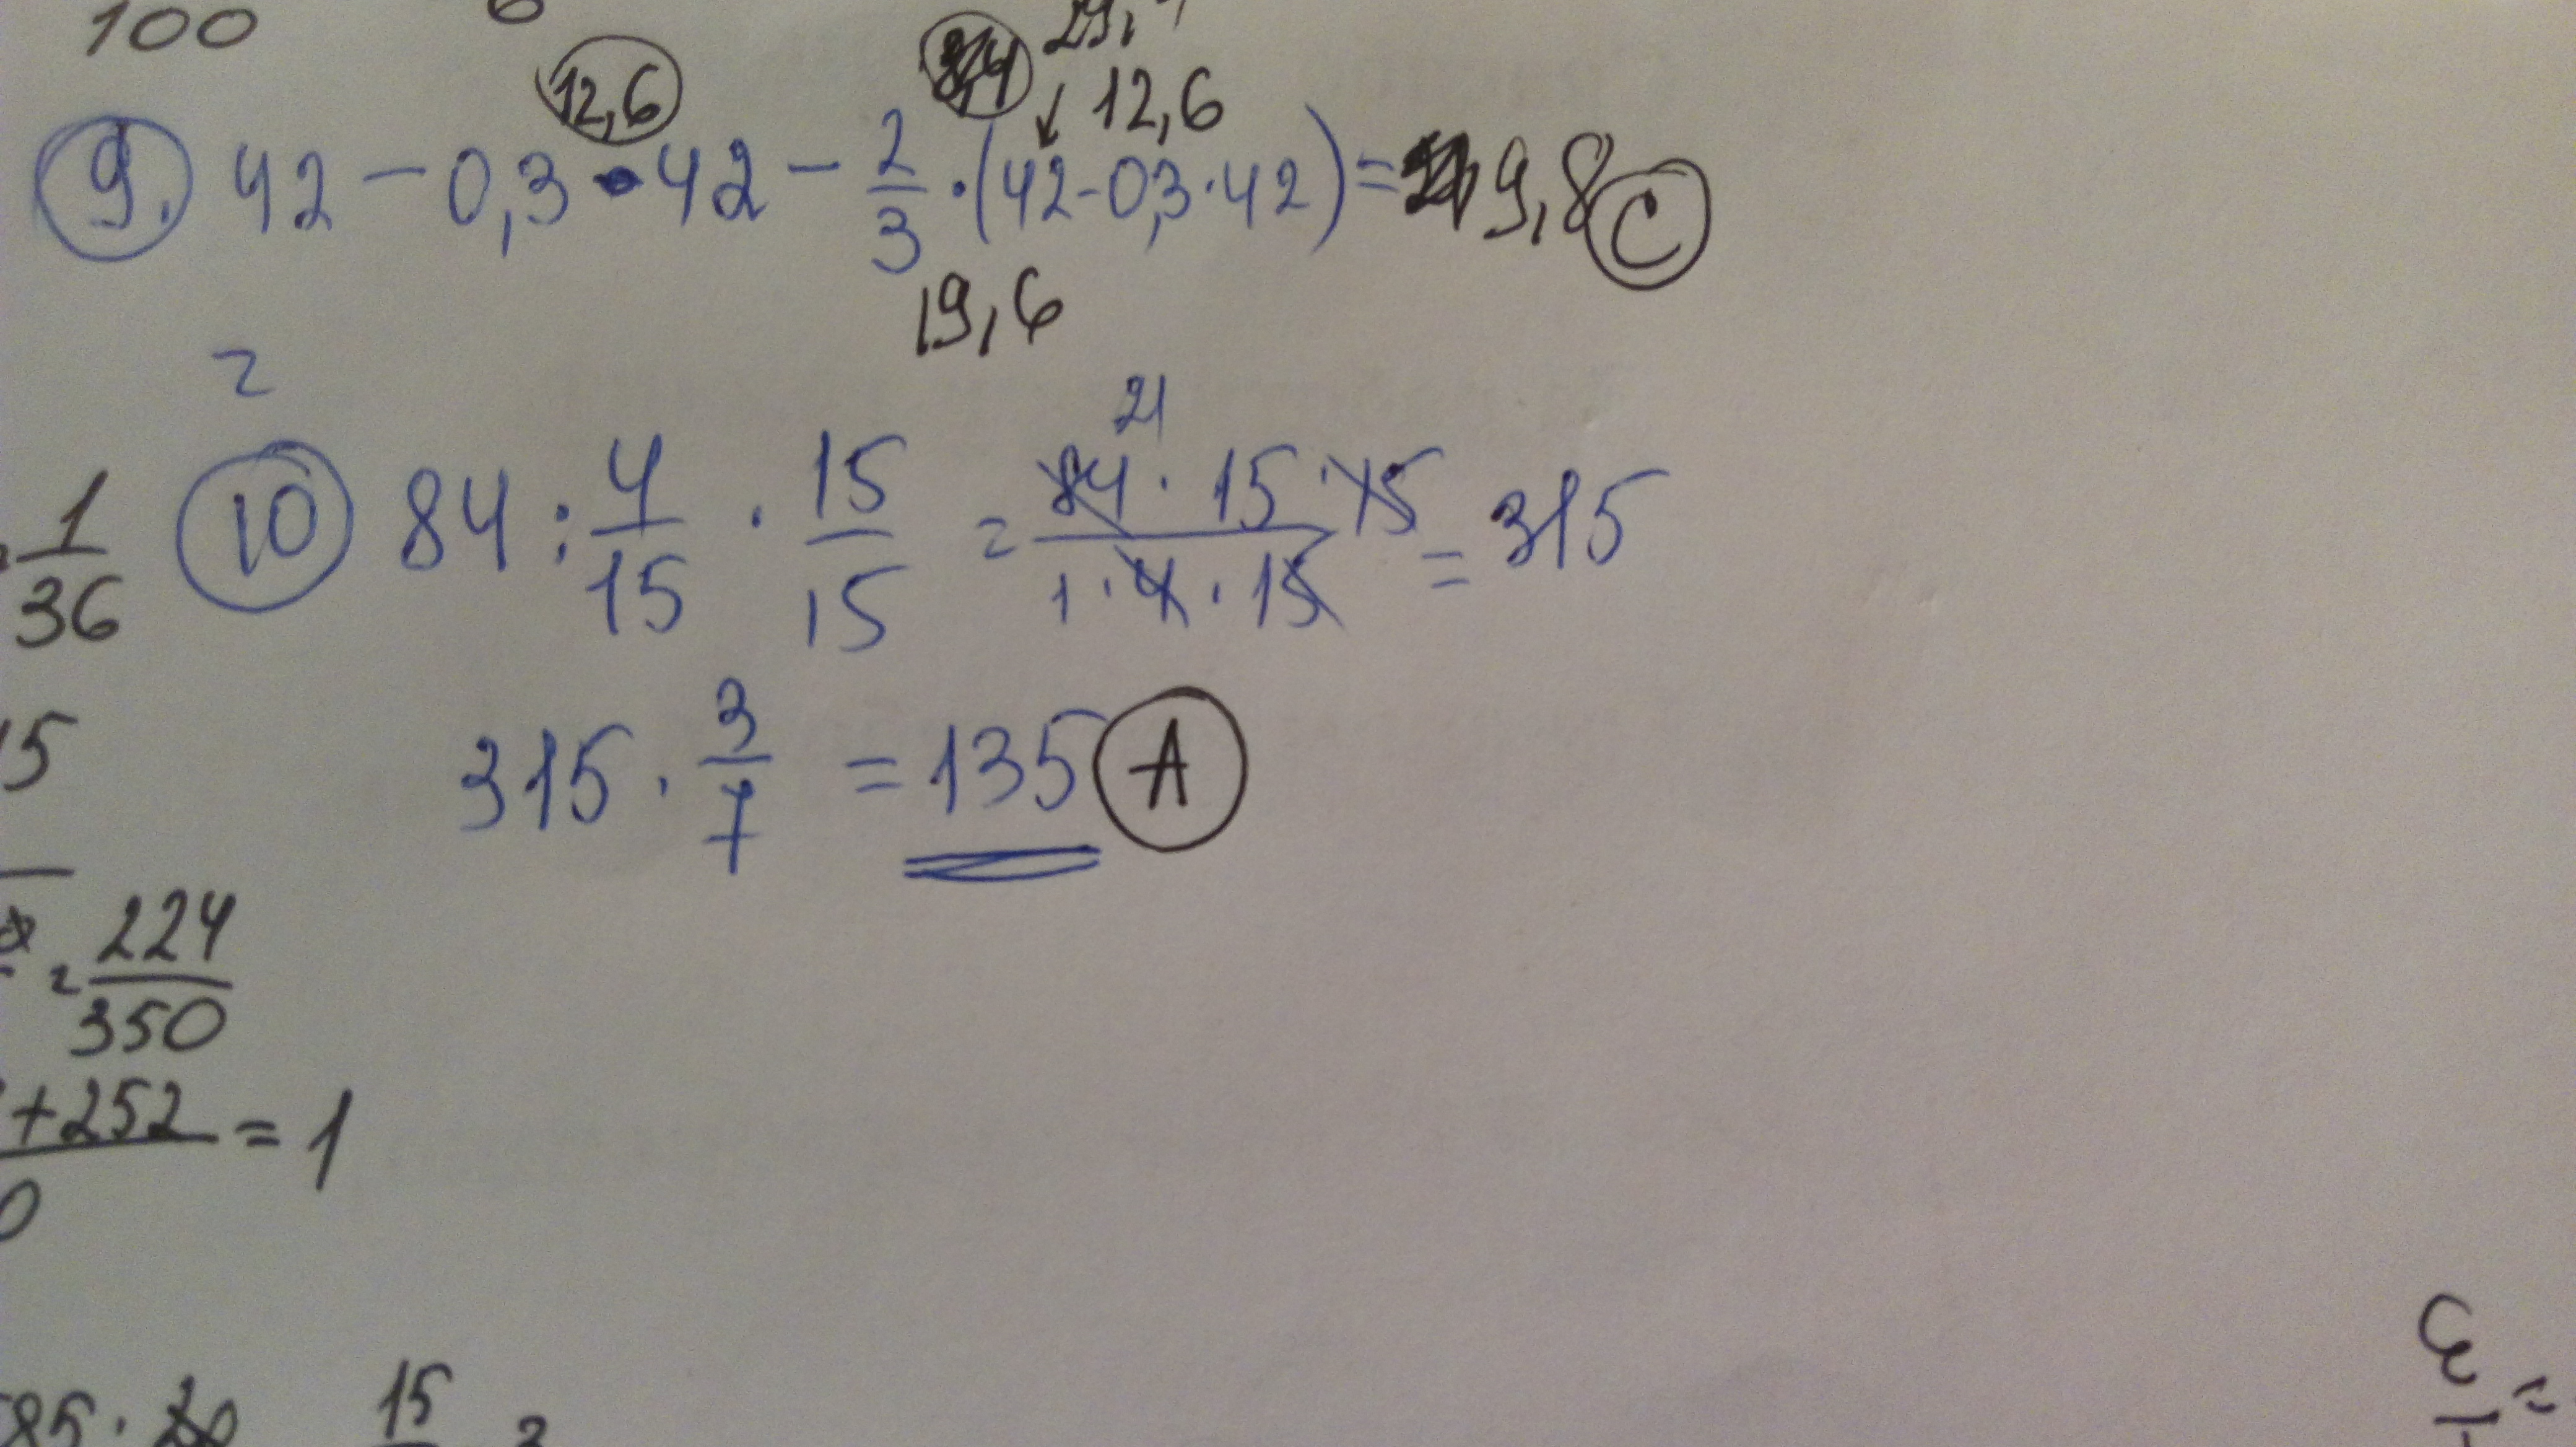 100
12,6 29,
12,6
9. 42 - 0,3 · 42 - 2/3 · (42 - 0,3 · 42) = 9,8 C
19,6
=
21
10 84 : 4/15 · 15/15 = 84 · 15 · 15 / 1 · 4 · 15 = 315
1/36
315 · 3/7 = 135 A
15
= 224/350
+252 = 1
0
85 · 20 15 3